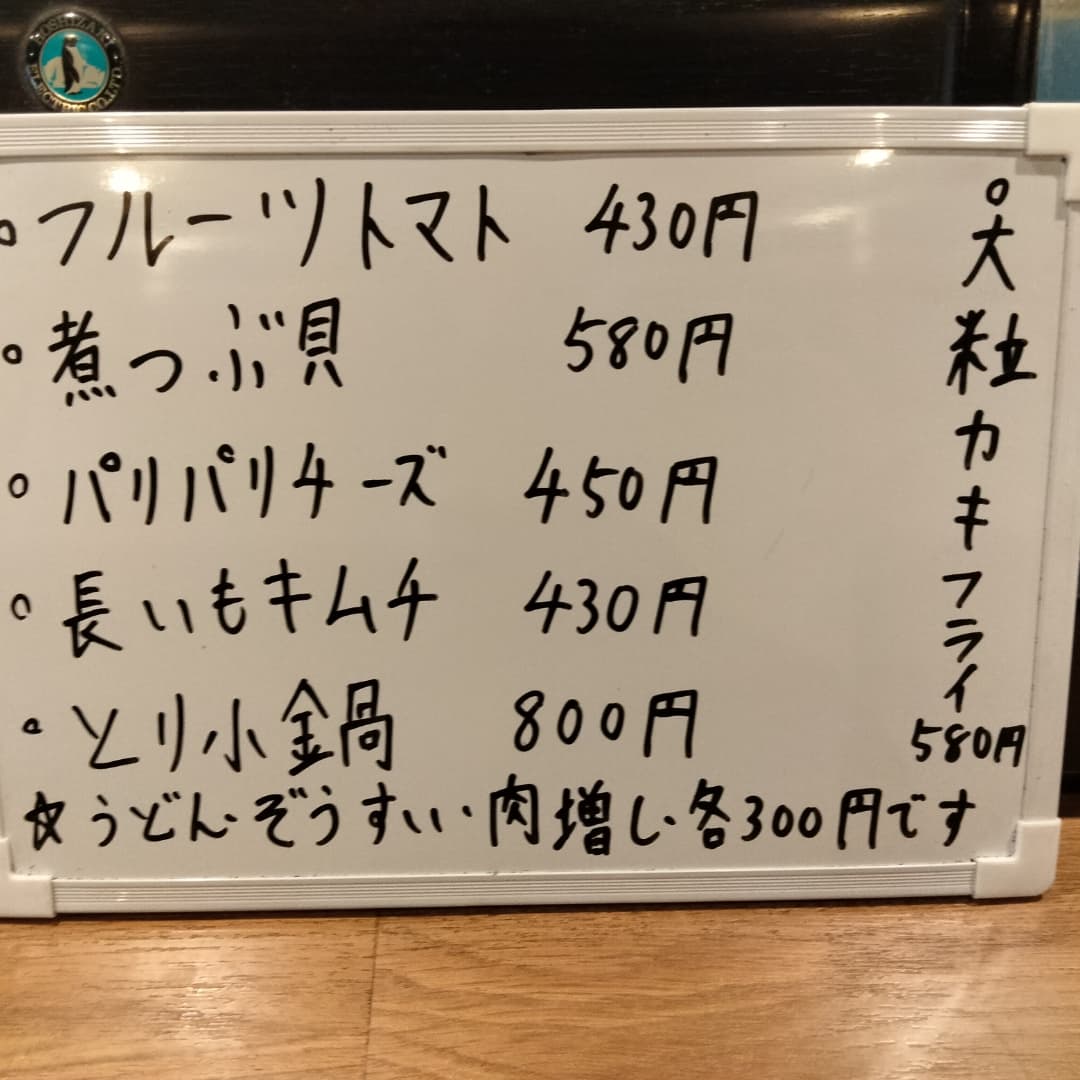 HOSHIZAKI ELECTRIC CO., LTD.
○フルーツトマト 430円
○煮つぶ貝 580円
○パリパリチーズ 450円
○長いもキムチ 430円
○とり小鍋 800円
☆うどん・ぞうすい・肉増し・各300円です
○大粒カキフライ
580円